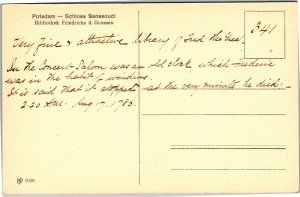 Potsdam — Schloss Sanssouci
Bibliothek Friedrichs d. Grossen
341
Very fine & attractive library of Fred. the Great.
In the Concert-Saloon was an old clock which Frederic
was in the habit of winding.
It is said that it stopped at the very minute he died:
2.20 Aug. 17, 1786.